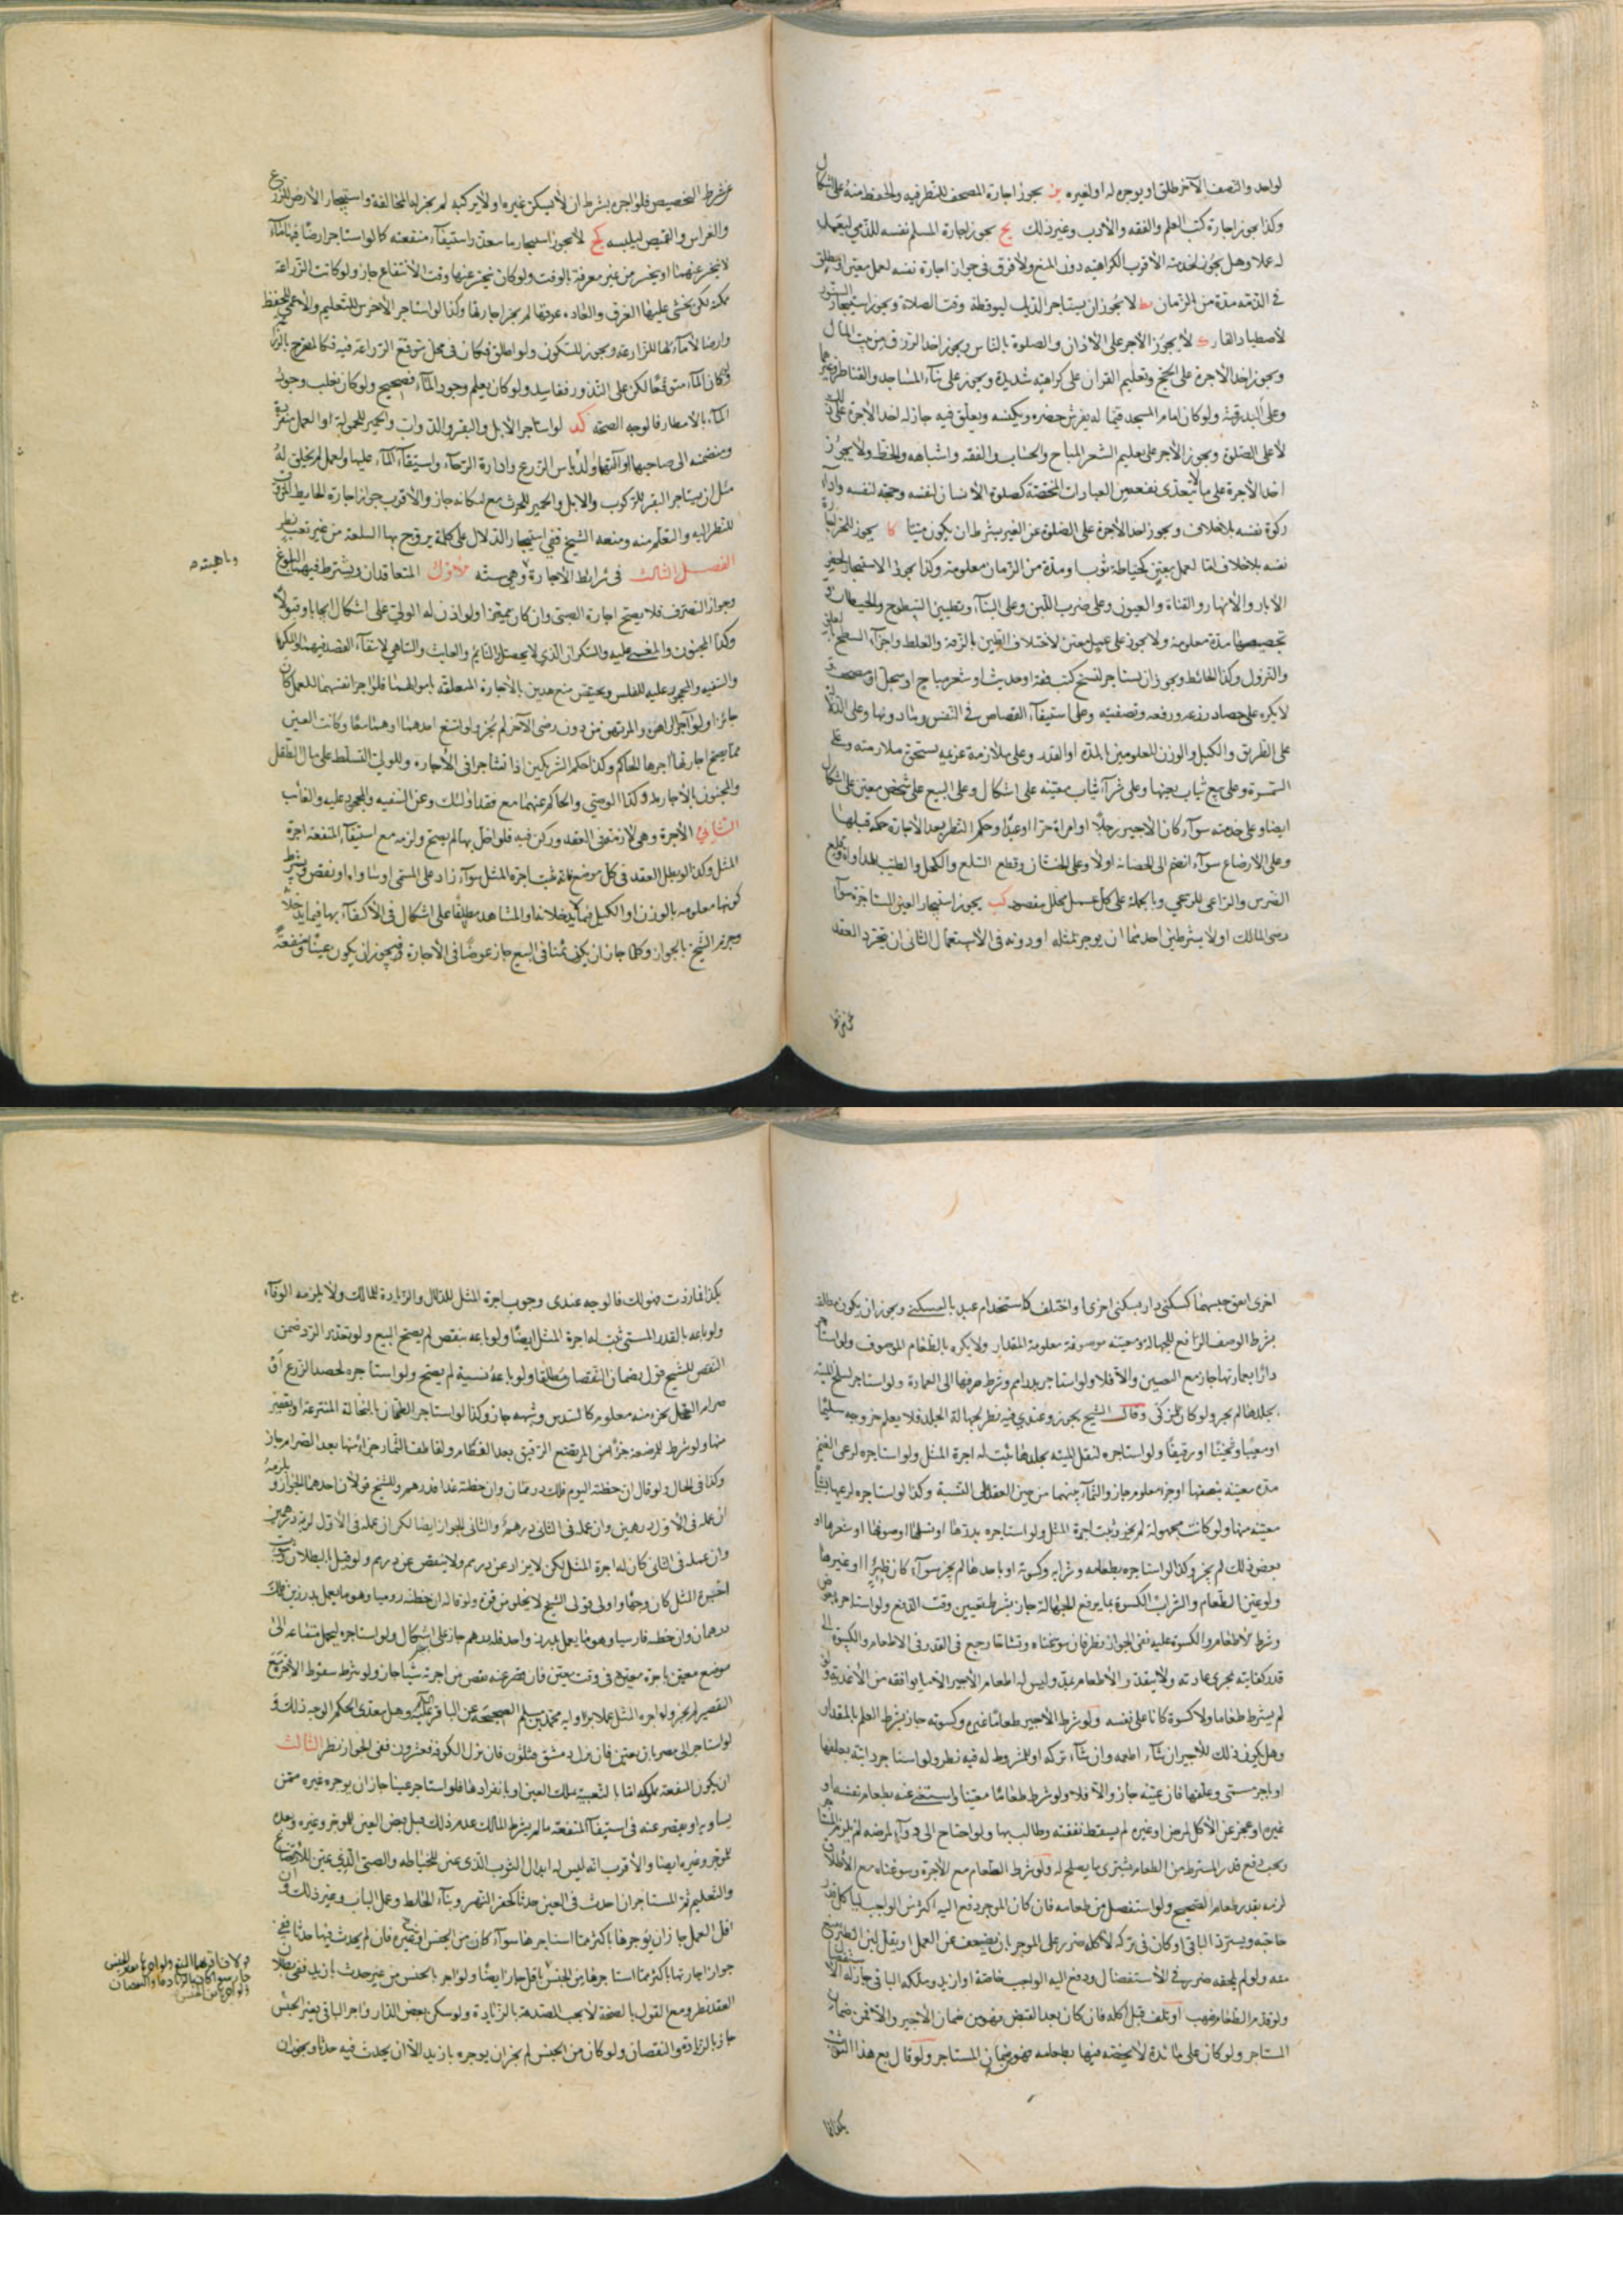 لواحد والنصف الآخر طلق او يوجره له او لغيره يز يجوز اجارة المصحف للنظر فيه والحفظ منه على اشكال
وكذا يجوز اجارة كتب العلم والفقه والأدب وغير ذلك يح يجوز اجارة المسلم نفسه للذمي ليعمل
له عملا وهل يجوز لخدمته الأقرب الكراهية دون المنع ولا فرق فى جواز اجارة نفسه لعمل معين او مطلق
في الذمه مدة من الزمان يط لا يجوز ان يستاجر الديك ليوقظه وقت الصلاة ويجوز استيجار السنور
لأصطياد الفار ك لا يجوز الأجر على الأذان والصلوة بالناس ويجوز اخذ الرزق من بيت المال
ويجوز اخذ الأجرة على الحج وتعليم القرآن على كراهية شديدة ويجوز على بناء المساجد والقناطر وغيرهما
وعلى البدرقة ولو كان امام المسجد قيما له يفرش حضره ويكنسه ويعلق فيه جاز له اخذ الأجرة على ذلك
لا على الصلوة ويجوز الأجر على تعليم الشعر المباح والحساب والفقه واشباهه والخط ولا يجوز
اخذ الأجرة على ما لا يتعدى نفعه من العبادات المختصة كصلوة الأنسان لنفسه وحجته لنفسه واداء
زكوة نفسه بلا خلاف ويجوز اخذ الأجرة على الصلوة عن الغير بشرط ان يكون ميتا كا يجوز للحر اجارة
نفسه بلا خلاف اما لعمل معين كخياطة ثوب او مدة من الزمان معلومة وكذا يجوز الاستيجار لحفر
الآبار والأنهار والقناة والعيون وعلى ضرب اللبن وعلى البناء وتطيين السطوح والحيطان و
تجصيصها مدة معلومة ولا يجوز على عمل معين لاختلاف الطين بالرقة والغلظ واجزاء السطح بالعلو
والنزول وكذا الحائط ويجوز ان يستاجر لنسخ كتب فقه او حديث او شعر مباح او سجل او مصحف و
لا يكره على حصاد زرعه ورفعه وتصفيته وعلى استيفاء القصاص في النفس وما دونها وعلى الدلالة
على الطريق والكيل والوزن المعلومين بالمدة او القدر وعلى ملازمة غريمه يستحق ملازمته وعلى
السمسرة وعلى بيع ثياب بعينها وعلى شراء ثياب معينه على اشكال وعلى البيع على شخص معين على اشكال
ايضا وعلى خدمته سواء كان الأجير رجلا او امراة حرا او عبدا وحكم النظر بعد الأجارة حكمه قبلها
وعلى الأرضاع سواء انضم الى الحضانة اولا وعلى الختان وقطع السلع والكحل والطبيب للمداواة وقلع
الضرس والراعى للرعى وبالجملة على كل عمل محلل مقصود كب يجوز استيجار العين المستاجرة سواء
رضى المالك اولا بشرطين احدهما ان يوجر لمثله او دونه فى الأستعمال الثانى ان يتجرد العقد
عن شرط
عن شرط التخصيص فلو اجره بشرط ان لا يسكن غيره او لا يركبه لم يجز له المخالفة واستيجار الأرض للزرع
والغراس والقميص ليلبسه كج لا يجوز استيجار ما يتعذر استيفاء منفعته كما لو استاجر ارضا فيها ماء
لا ينحسر عنها او ينحسر من غير معرفة بالوقت ولو كان ينحسر عنها وقت الأنتفاع جاز ولو كانت الزراعة
ممكنة لكن يخشى عليها الغرق والعادة غرقها لم يجز اجارتها وكذا لو استاجر الأخرس للتعليم والأعمى للحفظ
وارضا لا ماء لها للزراعة ويجوز للسكون ولو اطلق وكان فى محل يتوقع الزراعة فيه فكالمصرح بالزرع
ولو كان الماء متوقعا لكن على النذور ففاسد ولو كان يعلم وجود الماء فصحيح ولو كان يغلب وجود
الماء بالأمطار فالوجه الصحة كد لو استاجر الأبل والبقر والدواب والحمير للحمولة او العمل منفردة
ومنضمة الى صاحبها او آلتها ولدياس الزرع وادارة الرحا واستيقاء الماء عليها ولعمل لم يخلق له
مثل ان يستاجر البقر للركوب والابل والحمير للحرث مع امكانه جاز والأقرب جواز اجارة الحايط المزوق
للنظر اليه والتعلم منه ومنعه الشيخ ففى استيجار الدلال على كلمة يروج بها السلعة من غير تعب نظر
الفصل الثالث فى شرايط الأجارة وهى ستة الأول المتعاقدان ويشترط فيهما البلوغ
وجواز التصرف فلا يصح اجارة الصبى وان كان مميزا او لو اذن له الولي على اشكال ايجابا وقبولا
وكذا المجنون والمغمى عليه والسكران الذي لا يحصل والنايم والعابث والساهى لانتفاء القصد فيهم والمكره
والسفيه والمحجور عليه للفلس ويختص منع هذين بالأجارة المتعلقة باموالهما فلو اجرا نفسهما للعمل كان
جائزا ولو اجر الراهن والمرتهن من دون رضى الآخر لم يجز ولو امتنع احدهما او هما معا وكانت العين
مما يصح اجارتها اجرها الحاكم وكذا حكم الشريكين اذا تشاجرا فى الأجارة وللولى التسلط على مال الطفل
والمجنون بالأجارة وكذا الوصي والحاكم عنهما مع فقد اولئك وعن السفيه والمحجور عليه والغائب
الثاني الأجرة وهى لازمة فى العقد وركن فيه فلو اخل بها لم يصح ولزمه مع استيفاء المنفعة اجرة
المثل وكذا لو بطل العقد فى كل موضع فانه يثبت اجرة المثل سواء زاد على المسمى او ساواه او نقص ويشترط
كونها معلومة بالوزن او الكيل فيما يدخلانه او المشاهد مطلقا على اشكال فى الأكتفاء بها فيما يدخلا
وجزم الشيخ بالجواز وكلما جاز ان يكون ثمنا فى البيع جاز عوضا فى الأجارة فيجوز ان يكون عينا ومنفعة
وماهيته
اخرى اتفق جنسهما كسكنى دار بسكنى اخرى او اختلف كاستخدام عبد بالسكنى ويجوز ان يكون مطلقة
بشرط الوصف الرافع للجهالة ومعينة موصوفة معلومة المقدار ولا يكره بالطعام الموصوف ولو استاجر
دارا بعمارتها جاز مع التعيين والا فلا ولو استاجر بدراهم وشرط صرفها الى العمارة ولو استاجر لسلخ الميتة
بجلدها لم يجز ولو كان لمزكى وقال الشيخ يجوز وعندي فيه نظر لجهالة الجلد فلا يعلم خروجه سليما
او معيبا وثخينا او رقيقا ولو استاجره لنقل الميتة بجلدها ثبت له اجرة المثل ولو استاجره لرعى الغنم
مدة معينة بنصفها او جزء معلوم جاز والنماء بينهما من حين العقد على النسبة وكذا لو استاجره لرعيها بشاة
معينة منها ولو كانت مجهولة لم يجز وثبت اجرة المثل ولو استاجره بدرها او نسلها او صوفها او شعرها او
بعض ذلك لم يجز وكذا لو استاجره بطعامه وشرابه وكسوته او باحدها لم يجز سواء كان ظئرا او غيرها
ولو عين الطعام والشراب والكسوة بما يرفع الجهالة جاز بشرط تعيين وقت الدفع ولو استاجره بعوض
وشرط الأطعام والكسوة عليه ففى الجواز نظر فان سوغناه وتشاحا رجع فى القدر فى الاطعام والكسوة الى
قدر كفايته بمجرى عادته ولا يتقدر الأطعام بمد وليس له اطعام الأجير الا ما يوافقه من الأغذية ولو
لم يشترط طعاما ولا كسوة كانا على نفسه ولو شرط الأجير طعام غيره وكسوته جاز بشرط العلم بالمقدار
وهل يكون ذلك للأجير ان شاء اطعمه وان شاء تركه او للمشروط له فيه نظر ولو استاجر دابته بعلفها
او باجر مسمى وعلفها فان عينه جاز والا فلا ولو شرط طعاما معينا واستغنى عنه بطعام نفسه او
غيره او عجز عن الأكل لمرض او غيره لم يسقط نفقته وطالب بها ولو احتاج الى دواء لمرضه لم يلزم المستاجر
ويجب دفع قدر المشترط من الطعام يشترى ما يصلح له ولو شرط الطعام مع الأجرة وسوغناه مع الأطلاق
لزمه بقدر طعام الصحيح ولو استفضل من طعامه فان كان الموجر دفع اليه اكثر من الواجب لياكل قدر
حاجته ويسترد الباقى او كان فى تركه لأكله ضرر على الموجر بان يضعف عن العمل او يقل لبن الظئر منع
منه ولو لم يلحقه ضرر فى الأستفضال ودفع اليه الواجب خاصة او ازيد وملكه الباقى جاز له الاستفضال
ولو قدم الطعام فنهب او تلف قبل اكله فان كان بعد القبض فهو من ضمان الاجير والا فمن ضمان
المستاجر ولو كان على مائدة لا يخصه فيها بطعامه فهو من ضمان المستاجر ولو قال بع هذا الثوب
بكذا فما
بكذا فما زدت فهو لك فالوجه عندى وجوب اجرة المثل للدلال والزيادة للمالك ولا يلزمه الوفاء
ولو باعه بالقدر المسمى ثبت له اجرة المثل ايضا ولو باعه بنقص لم يصح البيع ولو تعذر الرد ضمن
النقص للشيخ قول بضمان النقصان مطلقا ولو باعه نسية لم يصح ولو استاجره لحصد الزرع او
صرام النخل بجزء منه معلوم كالسدس وشبهه جاز وكذا لو استاجر الطحان بالنخالة المنتزعة او بقفيز
منها ولو شرط للمرضعة جزءا من المرتضع الرقيق بعد الفطام ولقاطف الثمار جزءا منها بعد الصرام جاز
وكذا فى الحال ولو قال ان خطته اليوم فلك درهمان وان خطته غدا فدرهم وللشيخ قولان احدهما الجواز ويلزمه
ان عمله فى الأول درهمين وان عمله فى الثانى درهم والثانى الجواز ايضا لكن ان عمله فى الأول لزمه درهمين
وان عمله فى الثانى كان له اجرة المثل لكن لا يزاد عن درهم ولا ينقص عن درهم ولو قيل بالبطلان
اجرة المثل كان وجها واولى قولى الشيخ لا يخلو من قوة ولو قال ان خطته روميا وهو ما يعمل بدرزين فلك
درهمان وان خطته فارسيا وهو ما يعمل بدرز واحد فلك درهم جاز على اشكال ولو استاجره ليحمل متاعه الى
موضع معين باجرة معينة فى وقت معين فان قصر عنه نقص من اجرته شيئا جاز ولو شرط سقوط الأجرة مع
التقصير لم يجز وله اجرة المثل عملا برواية محمد بن مسلم الصحيحة عن الباقر وهل يتعدى الحكم الوجه ذلك فلو
لو استاجر الى مصر بمعين فان نزل دمشق فثلثون فان نزل الكوفة فعشرون ففى الجواز نظر الثالث
ان يكون المنفعة مملوكة اما بالتبعية لملك العين او بانفرادها فلو استاجر عينا جاز ان يوجره غيره ممن
يساويه او يقصر عنه فى استيفاء المنفعة ما لم يشترط المالك عدم ذلك قبل قبض العين للموجر وغيره وبعده
للموجر وغيره ايضا والأقرب انه ليس له ابدال الثوب الذى عين للخياطه والصبى الذي عين للأرضاع
والتعليم ثم المستاجر ان احدث فى العين حدثا كحفر النهر وبناء الحائط وعمل الباب وغير ذلك وان
اقل العمل جاز ان يؤجرها باكثر مما استاجرها سواء كان من الجنس او غيره فان لم يحدث فيها حدثا ففى
جواز اجارتها باكثر مما استاجرها من الجنس باقل جاز ايضا ولو اجر بالجنس من غير حدث بازيد ففى بطلان
العقد نظر ومع القول بالصحة لا يجب الصدقة بالزيادة ولو سكن بعض الدار واجر الباقى بغير الجنس
جاز بالزيادة والنقصان ولو كان من الجنس لم يجز ان يوجره بازيد الا ان يحدث فيه حدثا ويجوز ان